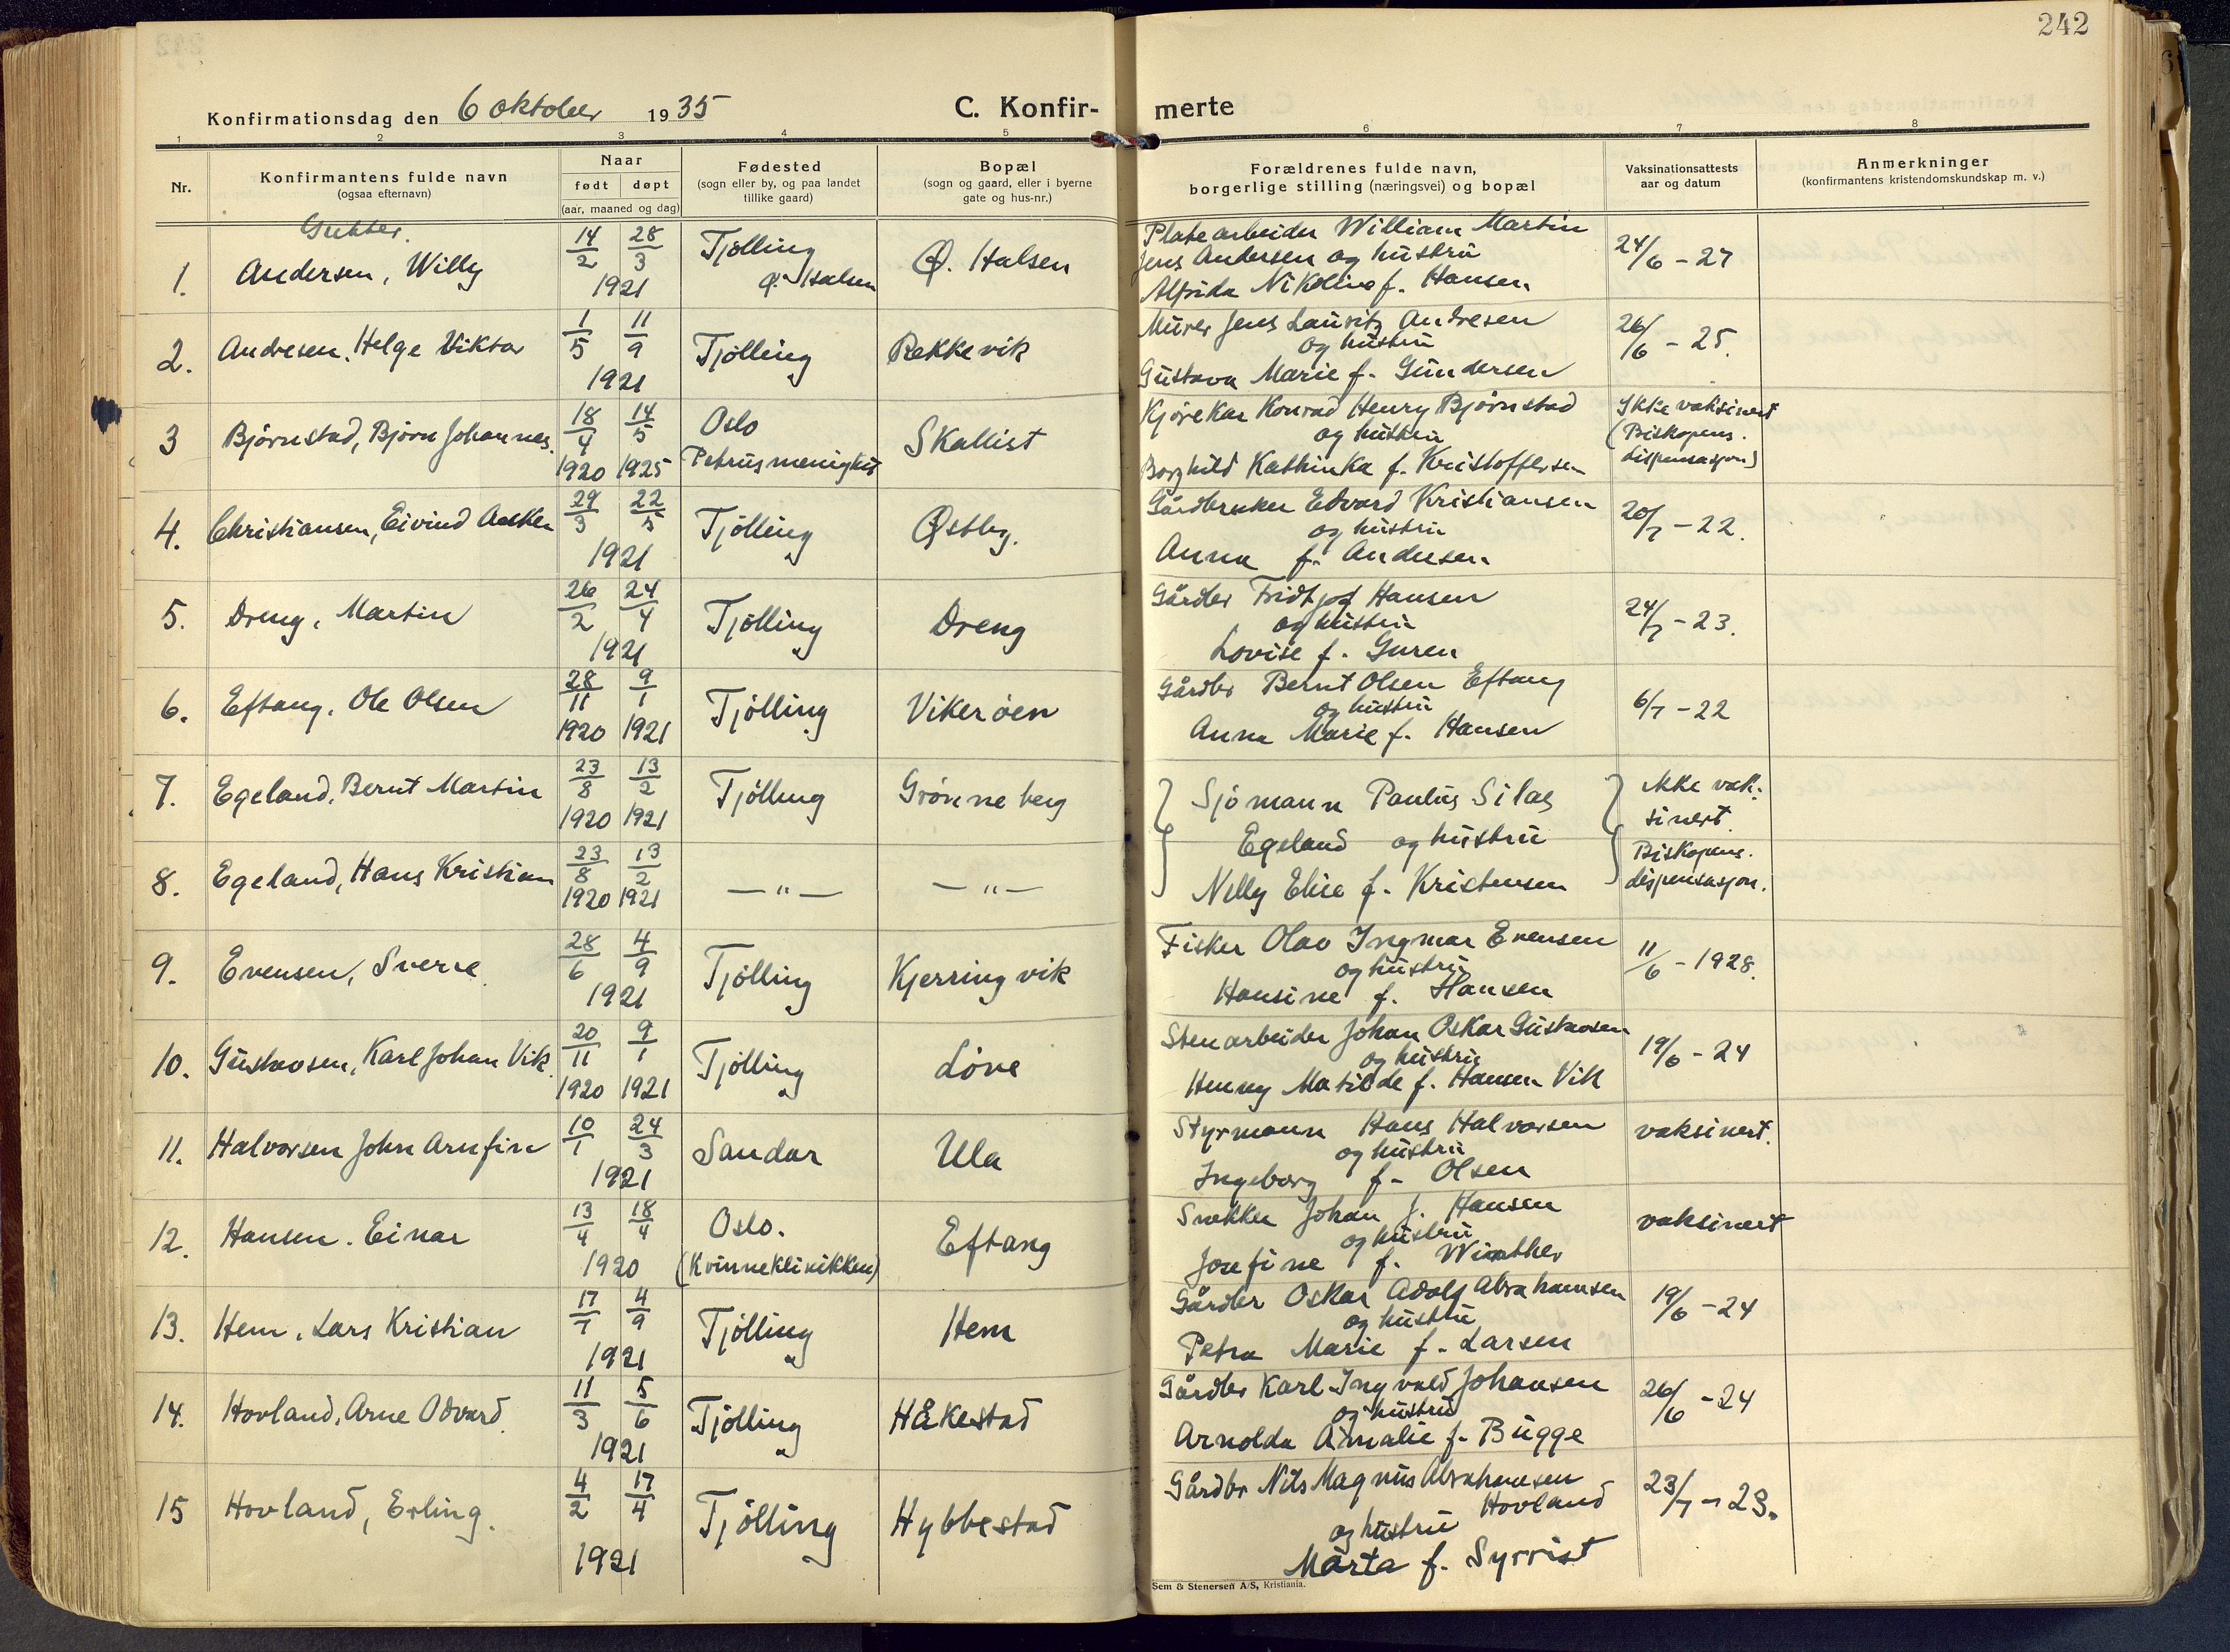 242
Konfirmationsdag den 6 oktober 1935
C. Konfir-
merte
1 2 3 4 5 6 7 8
Nr.
Konfirmantens fulde navn
(ogsaa efternavn)
Naar
født døpt
(aar, maaned og dag)
Fødested
(sogn eller by, og paa landet
tillike gaard)
Bopæl
(sogn og gaard, eller i byerne
gate og hus-nr.)
Forældrenes fulde navn,
borgerlige stilling (næringsvei) og bopæl
Vaksinationsattests
aar og datum
Anmerkninger
(konfirmantens kristendomskundskap m. v.)
Gutter.
1. Andersen, Willy
14/2 28/3
1921
Tjølling
Ø. Halsen
Ø. Halsen
Platearbeider William Martin
Jens Andersen og hustru
Alfrida Nikoline f. Hansen
24/6 - 27
2. Andresen, Helge Viktor
1/5 11/9
1921
Tjølling
Rekkevik
Murer Jens Lauritz Andresen
og hustru
Gustava Marie f. Gundersen
26/6 - 25.
3 Bjørnstad, Bjørn Johannes.
18/4 14/5
1920 1925
Oslo
Petrus menighet
Skallist
Kjørekar Konrad Henry Bjørnstad
og hustru
Borghild Kathinka f. Kristoffersen
Ikke vaksinert
(Biskopens.
dispensasjon)
4. Christiansen, Eivind Asker
29/3 22/5
1921
Tjølling
Østby.
Gårdbruker Edvard Kristiansen
og hustru
Anna f. Andersen
20/7 - 22.
5. Dreng, Martin
26/2 24/4
1921
Tjølling
Dreng
Gårdbr Fridtjof Hansen
og hustru
Lovise f. Guren
24/7 - 23.
6. Eftang, Ole Olsen
28/11 9/1
1920 1921
Tjølling
Vikerøen
Gårdbr Bernt Olsen Eftang
og hustru
Anna Marie f. Hansen
6/7 - 22
7. Egeland, Bernt Martin
23/8 13/2
1920 1921
Tjølling
Grønneberg
Sjømann Paulus Silas
Egeland og hustru
Nelly Elise f. Kristensen
ikke vak-
sinert.
Biskopens.
dispensasjon.
8. Egeland, Hans Kristian
23/8 13/2
1920 1921
— " —
— " —
9. Evensen, Sverre
28/6 4/9
1921
Tjølling
Kjerringvik
Fisker Olav Ingmar Evensen
og hustru
Hansine f. Hansen
11/6 - 1928.
10. Gustavsen, Karl Johan Vik.
20/11 9/1
1920 1921
Tjølling
Løve
Stenarbeider Johan Oskar Gustavsen
og hustru
Henny Matilde f. Hansen Vik
19/6 - 24
11. Halvorsen John Arnfin
10/1 24/3
1921
Sandar
Ula
Styrmann Hans Halvorsen
og hustru
Ingeborg f. Olsen
vaksinert.
12. Hansen. Einar
13/4 18/4
1920
Oslo.
(Kvinneklinikken)
Eftang
Snekker Johan J. Hansen
og hustru
Josefine f. Winther
vaksinert
13. Hem, Lars Kristian
17/7 4/9
1921
Tjølling
Hem
Gårdbr Oskar Adolf Abrahamsen
og hustru
Petra Marie f. Larsen
19/6 - 24
14. Hovland, Arne Odvard.
11/3 5/6
1921
Tjølling
Håkestad
Gårdbr Karl Ingvald Johansen
og hustru
Arnolda Amalie f. Bugge
26/6 - 24
15 Hovland, Erling.
4/2 17/4
1921
Tjølling
Hybbestad
Gårdbr Nils Magnus Abrahamsen
Hovland
og hustru
Märta f. Syrrist
23/7 - 23.
Sem & Stenersen A/S, Kristiania.